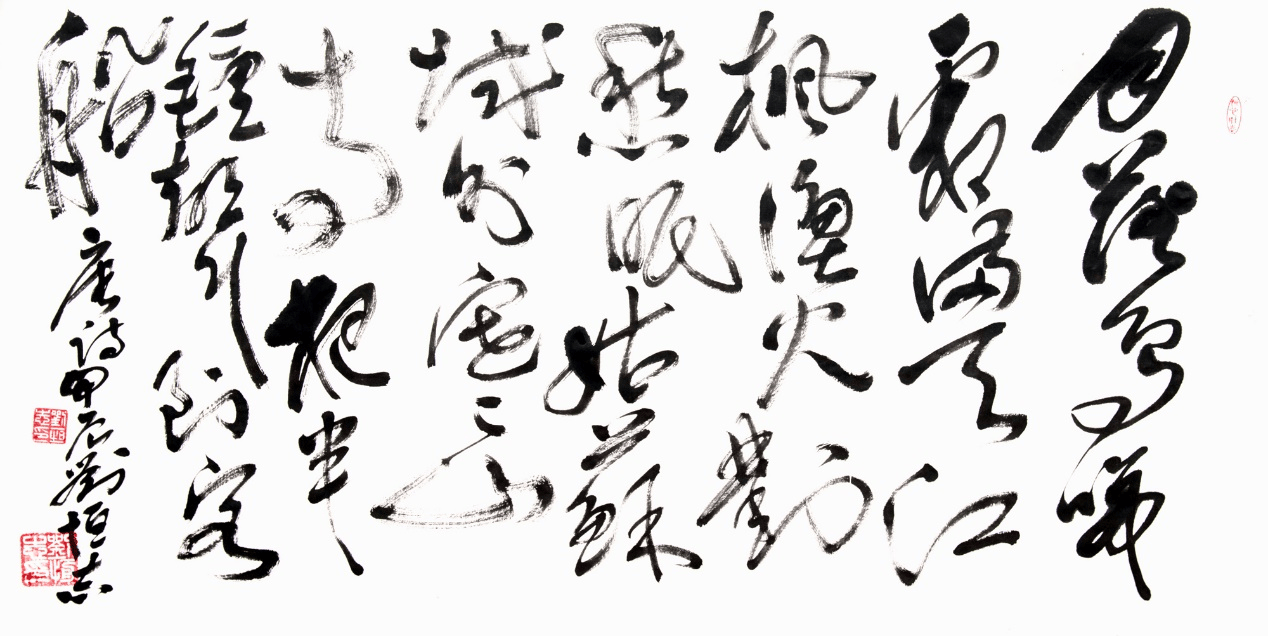 月落烏啼
霜滿天江
楓漁火對
愁眠姑蘇
城外寒山
寺夜半
鐘聲到客
船 唐詩甲辰劉恒志